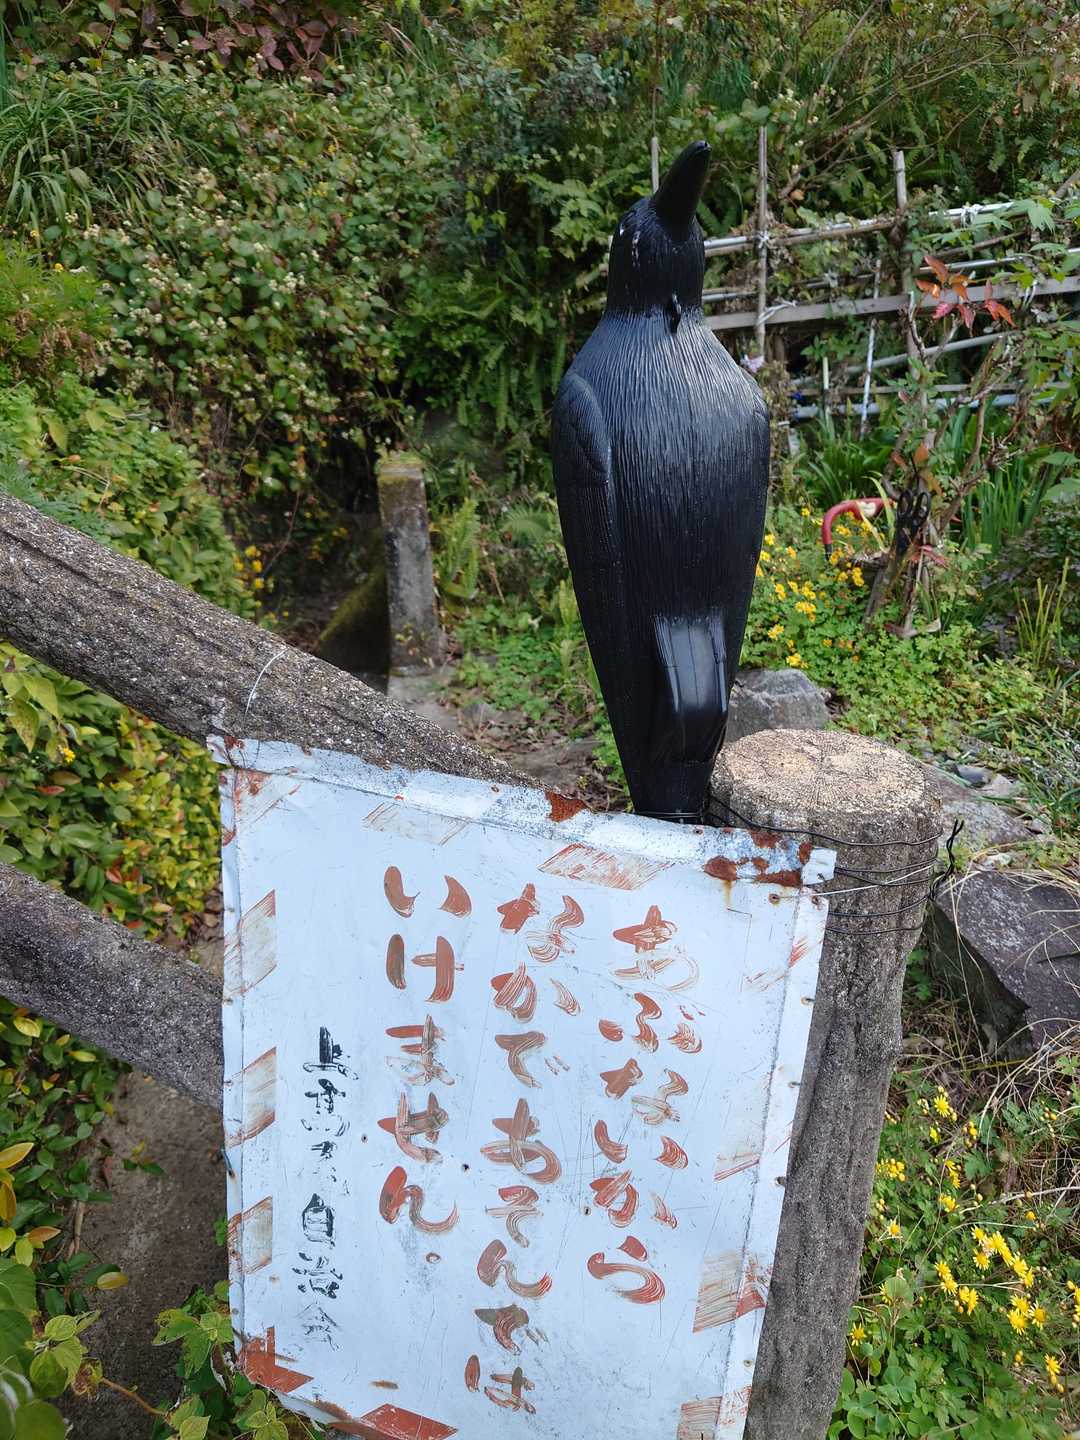 あぶないから
なかであそんでは
いけません。
自治会